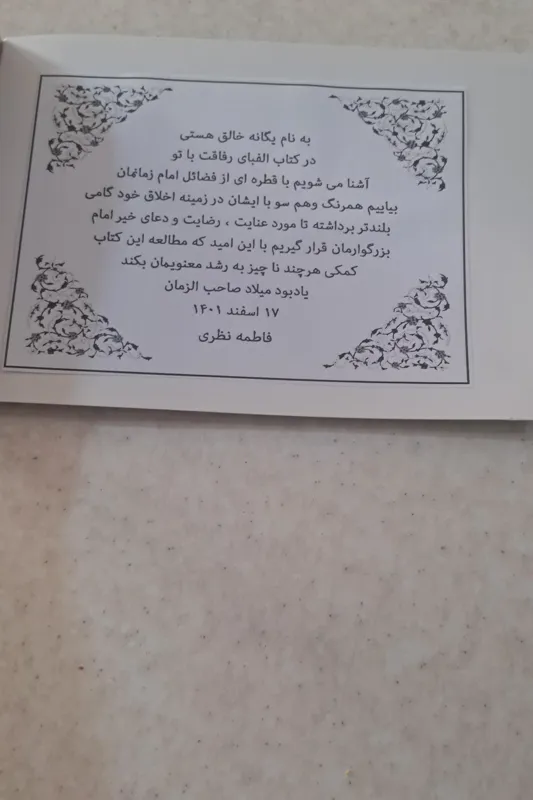 به نام یگانه خالق هستی
در کتاب الفبای رفاقت با تو
آشنا می شویم با قطره ای از فضائل امام زمانمان
بیاییم همرنگ وهم سو با ایشان در زمینه اخلاق خود گامی
بلندتر برداشته تا مورد عنایت ، رضایت و دعای خیر امام
بزرگوارمان قرار گیریم با این امید که مطالعه این کتاب
کمکی هرچند نا چیز به رشد معنویمان بکند
یادبود میلاد صاحب الزمان
۱۷ اسفند ۱۴۰۱
فاطمه نظری